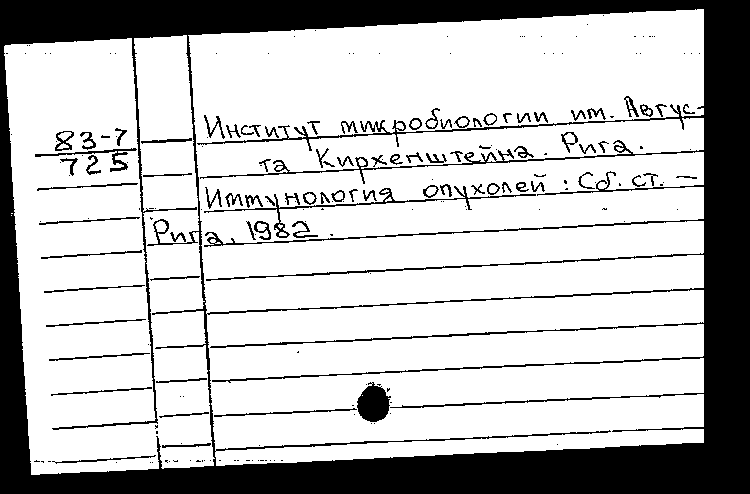 83-7
725
Институт микробиологии им. Авгус-
та Кирхенштейна. Рига.
Иммунология опухолей : Сб. ст. –
Рига, 1982.